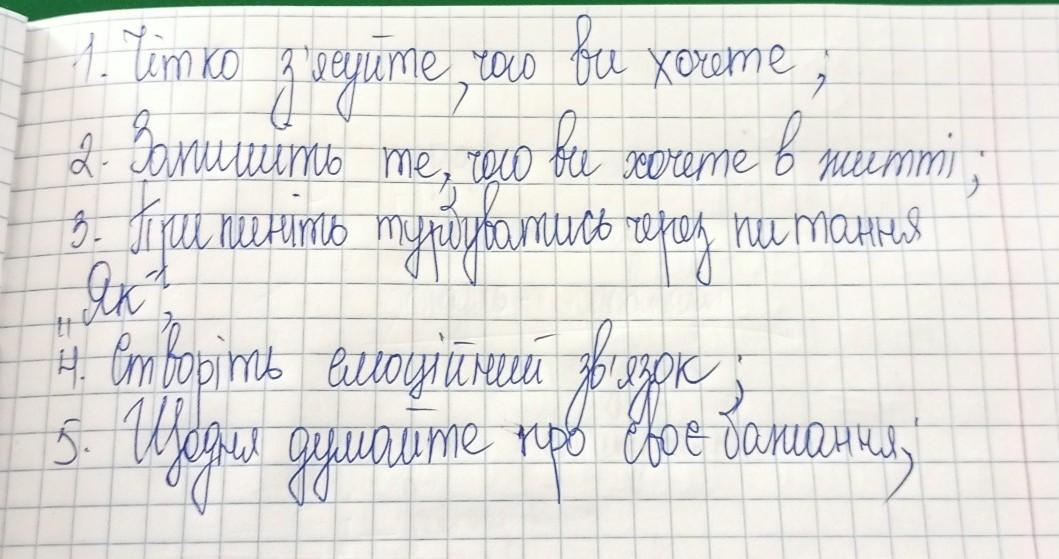 1. Чітко з'ясуйте, чого ви хочете;
2. Запишіть те, чого ви хочете в житті;
3. Припиніть турбуватись через питання
„Як",
4. Створіть емоційний зв'язок;
5. Щодня думайте про своє бажання;